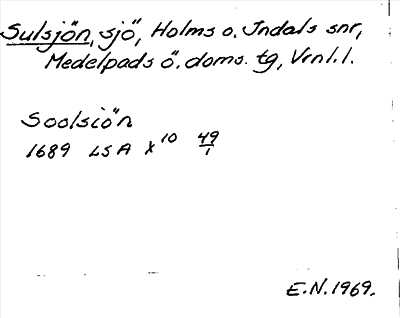 Sulsjön, sjö, Holms o. Indals snr,
Medelpads ö. doms. tg, Vrnl. l.
Soolsiön
1689 LSA X 10 49/1
E.N. 1969.